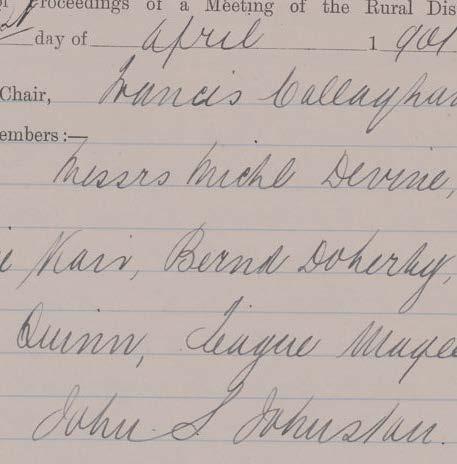 Proceedings of a Meeting of the Rural Dis
day of April 1901
Chair, Francis Callaghan
embers:—
Messrs Michl Devine,
Kair, Bernd Doherty,
Quinn, Teague Magee
John S Johnston.